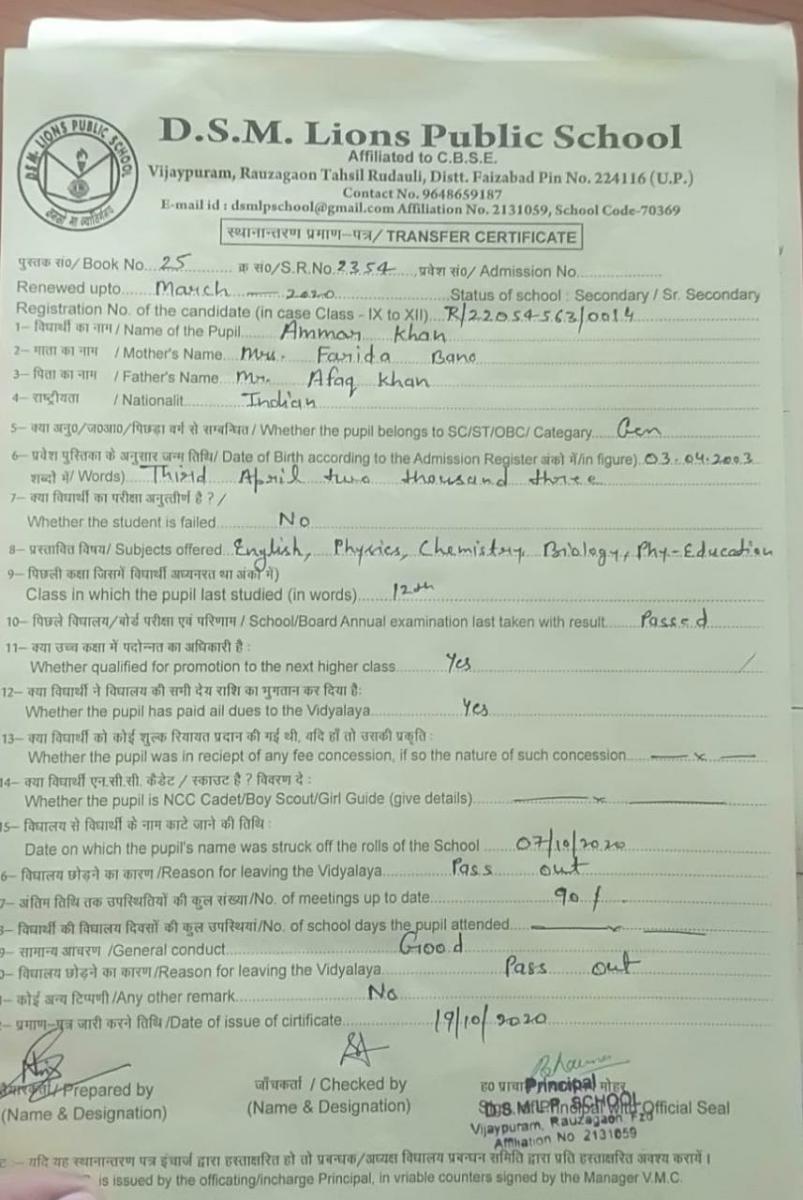 DSM. LIONS PUBLIC SCHOOL
D.S.M. Lions Public School
Affiliated to C.B.S.E.
Vijaypuram, Rauzagaon Tahsil Rudauli, Distt. Faizabad Pin No. 224116 (U.P.)
Contact No. 9648659187
E-mail id : dsmlpschool@gmail.com Affiliation No. 2131059, School Code-70369
स्थानान्तरण प्रमाण–पत्र/ TRANSFER CERTIFICATE
पुस्तक सं०/ Book No. 25 क्र सं०/S.R.No. 2354 प्रवेश सं०/ Admission No.
Renewed upto March 2020 Status of school : Secondary / Sr. Secondary
Registration No. of the candidate (in case Class - IX to XII) R/22054563/0014
1– विद्यार्थी का नाम / Name of the Pupil Ammar Khan
2– माता का नाम / Mother's Name Mrs. Farida Bano
3– पिता का नाम / Father's Name Mr. Afaq Khan
4– राष्ट्रीयता / Nationalit Indian
5– क्या अनु०/ज०आ०/पिछड़ा वर्ग से सम्बन्धित / Whether the pupil belongs to SC/ST/OBC/ Categary Gen
6– प्रवेश पुस्तिका के अनुसार जन्म तिथि/ Date of Birth according to the Admission Register अंको में/in figure) 03.04.2003
शब्दो में/ Words) Third April two thousand three
7– क्या विद्यार्थी का परीक्षा अनुत्तीर्ण है ? /
Whether the student is failed No
8– प्रस्तावित विषय/ Subjects offered English, Physics, Chemistry Biology, Phy-Education
9– पिछली कक्षा जिसमें विद्यार्थी अध्यनरत था अंको में)
Class in which the pupil last studied (in words) 12th
10– पिछले विद्यालय/बोर्ड परीक्षा एवं परिणाम / School/Board Annual examination last taken with result Passed
11– क्या उच्च कक्षा में पदोन्नत का अधिकारी है :
Whether qualified for promotion to the next higher class Yes
12– क्या विद्यार्थी ने विद्यालय की सभी देय राशि का भुगतान कर दिया है:
Whether the pupil has paid ail dues to the Vidyalaya Yes
13– क्या विद्यार्थी को कोई शुल्क रियायत प्रदान की गई थी, यदि हाँ तो उसकी प्रकृति :
Whether the pupil was in reciept of any fee concession, if so the nature of such concession — x —
14– क्या विद्यार्थी एन.सी.सी. कैडेट / स्काउट है ? विवरण दे :
Whether the pupil is NCC Cadet/Boy Scout/Girl Guide (give details) — x —
15– विद्यालय से विद्यार्थी के नाम काटे जाने की तिथि :
Date on which the pupil's name was struck off the rolls of the School 07/10/2020
6– विद्यालय छोड़ने का कारण /Reason for leaving the Vidyalaya Pass out
7– अंतिम तिथि तक उपस्थितियों की कुल संख्या/No. of meetings up to date 90 /.
8– विद्यार्थी की विद्यालय दिवसों की कुल उपस्थियां/No. of school days the pupil attended — x —
9– सामान्य आचरण /General conduct Good
0– विद्यालय छोड़ने का कारण /Reason for leaving the Vidyalaya Pass out
– कोई अन्य टिप्पणी /Any other remark No
– प्रमाण–पत्र जारी करने तिथि /Date of issue of cirtificate 19/10/2020
/ Prepared by जाँचकर्ता / Checked by ह० प्राचा Principal मोहर
(Name & Designation) (Name & Designation) D.S.M.L.P. SCHOOL Principal with Official Seal
Vijaypuram, Rauzagaon Fzd
Affiliation No 2131059
:– यदि यह स्थानान्तरण पत्र इंचार्ज द्वारा हस्ताक्षरित हो तो प्रबन्धक/अध्यक्ष विद्यालय प्रबन्धन समिति द्वारा प्रति हस्ताक्षरित अवश्य करायें ।
is issued by the officating/incharge Principal, in vriable counters signed by the Manager V.M.C.